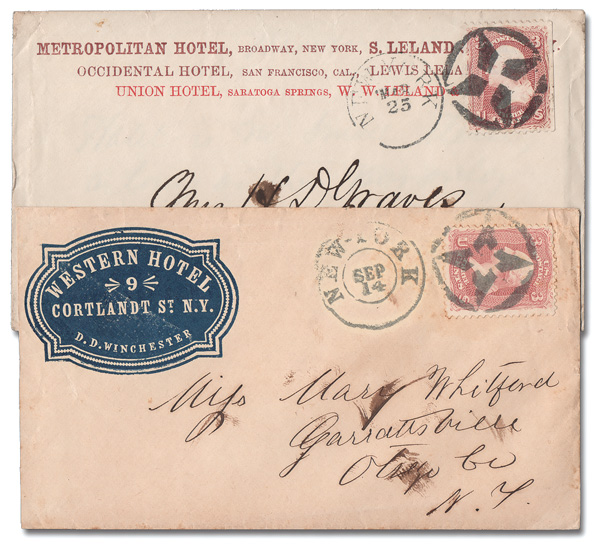 METROPOLITAN HOTEL, BROADWAY, NEW YORK, S. LELAND
OCCIDENTAL HOTEL, SAN FRANCISCO, CAL. LEWIS LELA
UNION HOTEL, SARATOGA SPRINGS, W. W. LELAND
NEW YORK
25
Graves
WESTERN HOTEL
9
CORTLANDT ST. N.Y.
D. D. WINCHESTER
NEW-YORK
SEP
14
3
Miss Mary Whitford
Garrattsville
Otsego Co
N. Y.